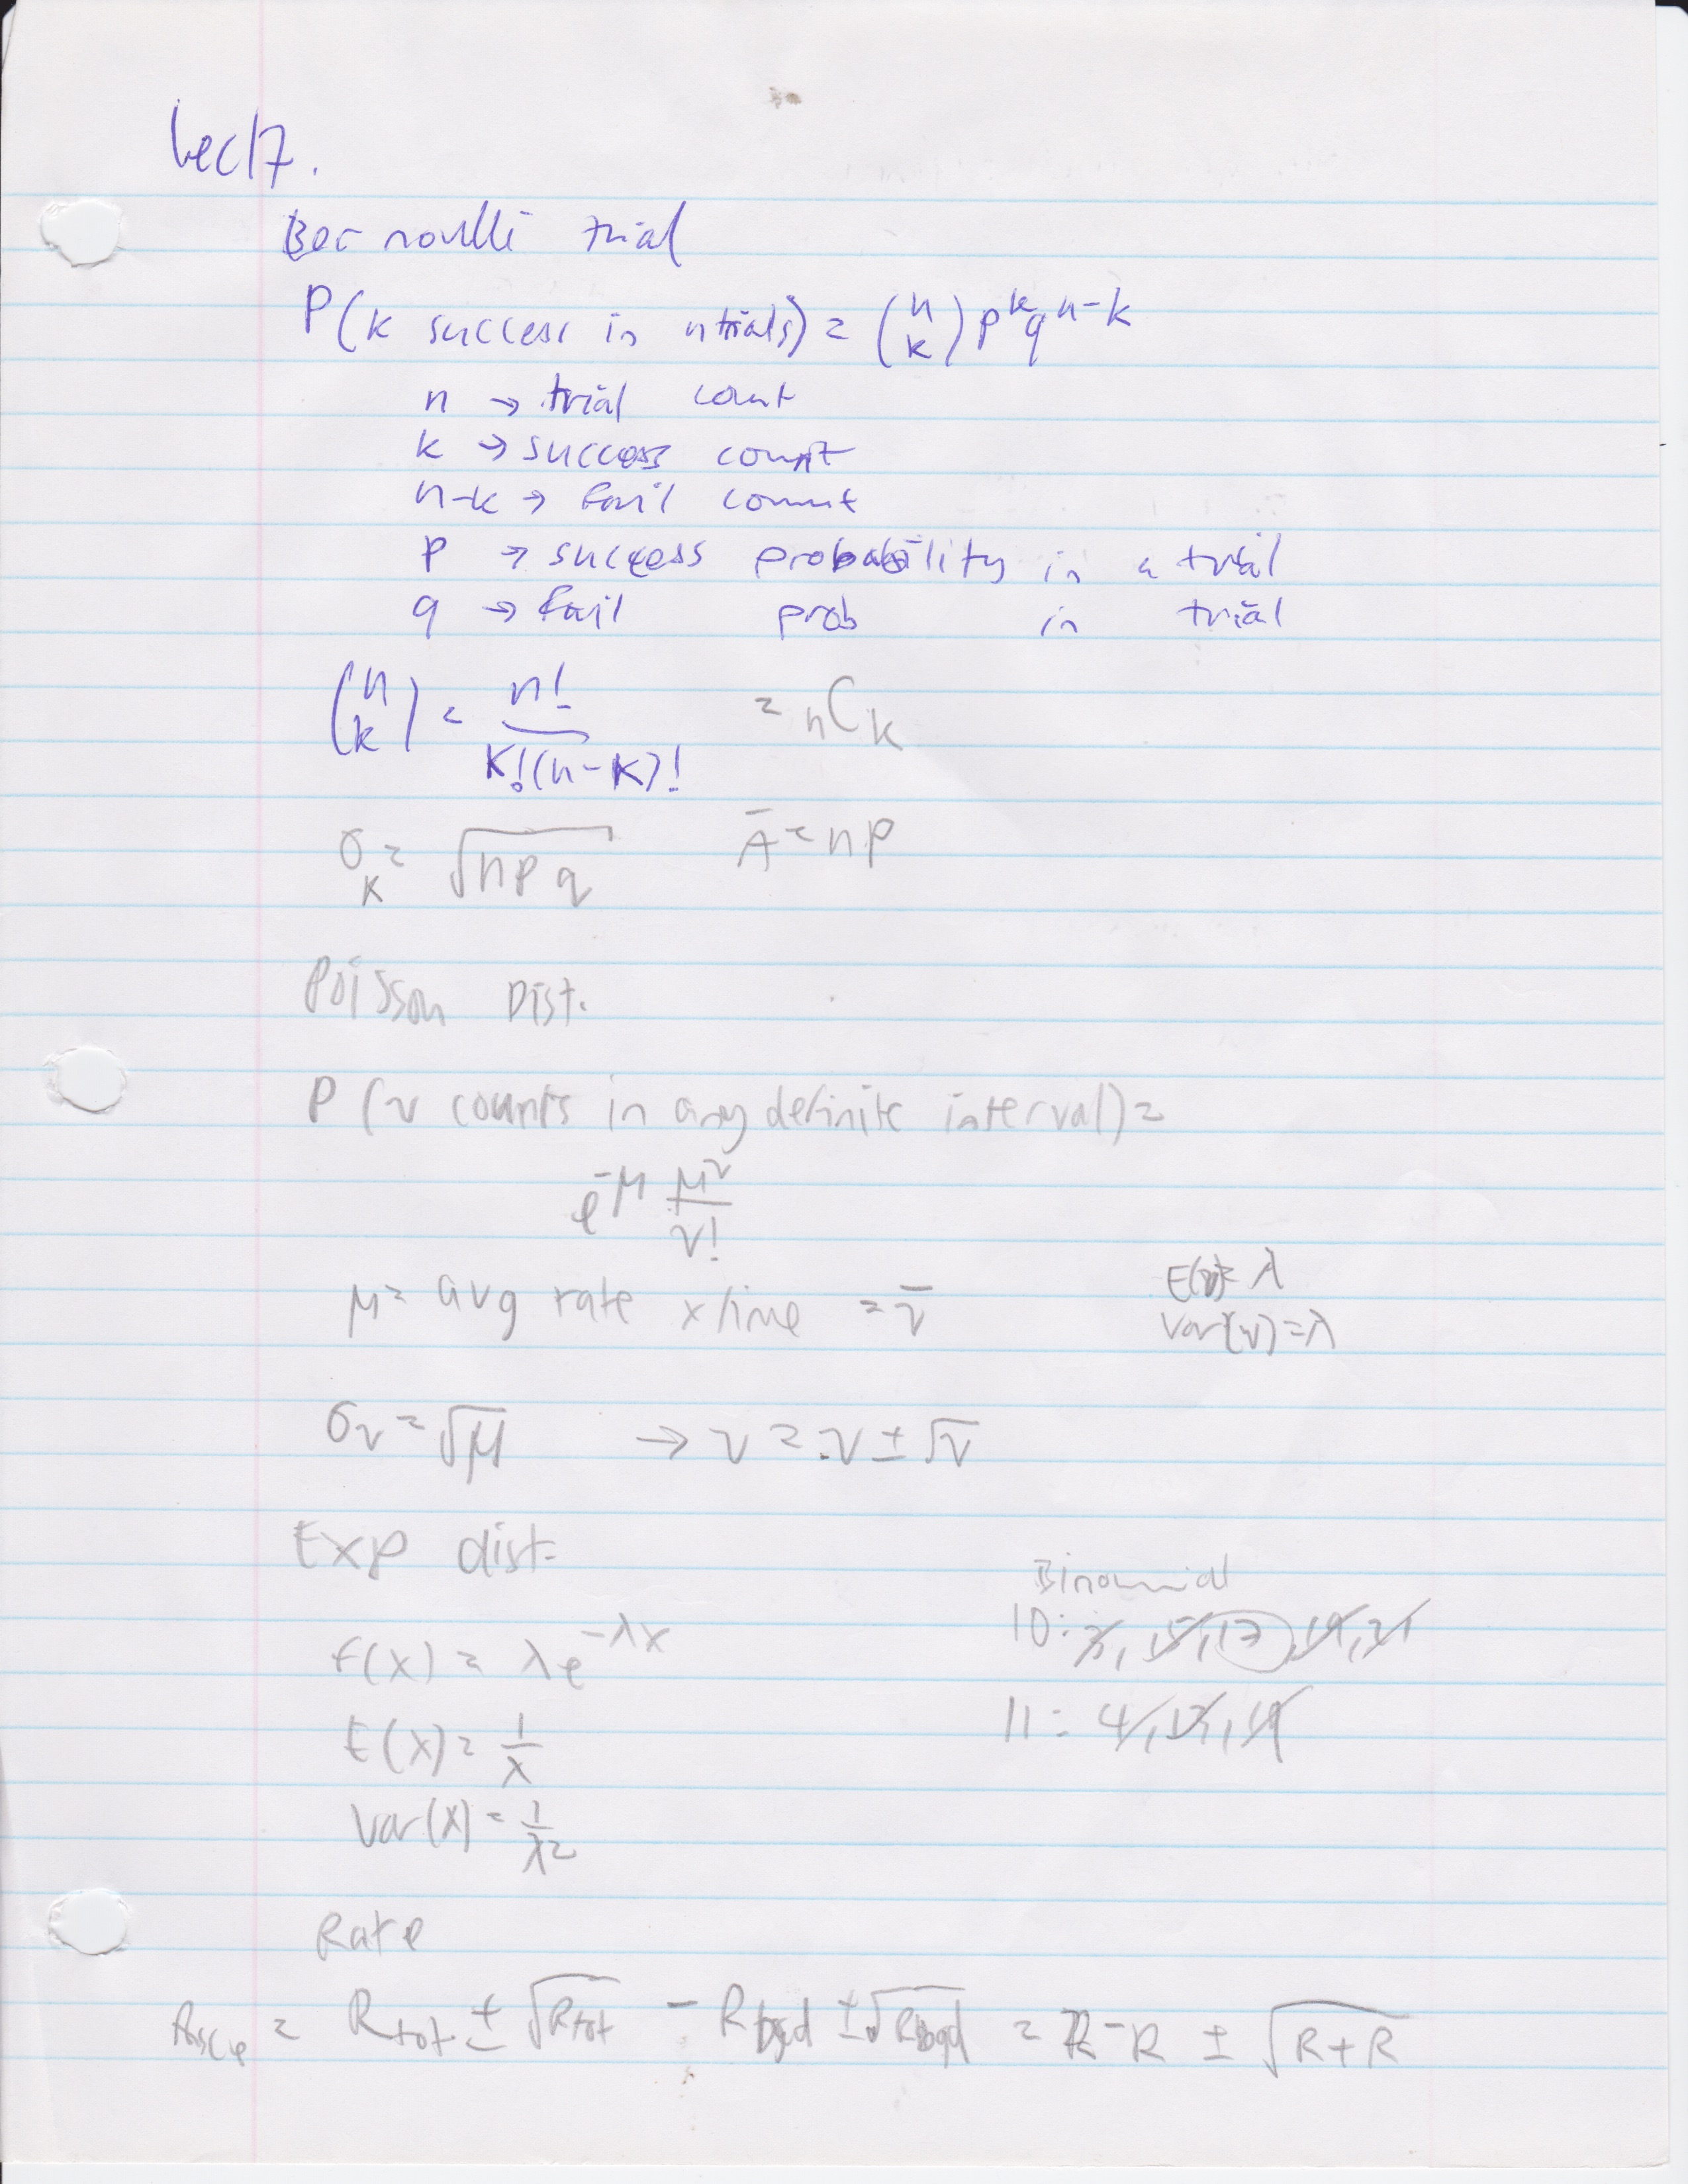 Lec17.
Bernoulli trial
P(k success in n trials) = (n k) p^k q^n-k
n → trial count
k → success count
n-k → fail count
p → success probability in a trial
q → fail prob in trial
(n k) = n! / k!(n-k)! = nCk
σk = √npq Ā = np
Poisson Dist.
P(ν counts in any definite interval) =
e^-μ μ^ν / ν!
μ = avg rate x time = ν̄
E(ν) = λ
Var(ν) = λ
σν = √μ → ν = ν ± √ν
Exp dist.
f(x) = λe^-λx
E(x) = 1/λ
Var(x) = 1/λ2
Binomial
10: 3, 15, 17, 19, 21
11: 4, 17, 19
Rate
= Rtot ± √Rtot - Rbgd ± √Rbgd = R-R ± √R+R